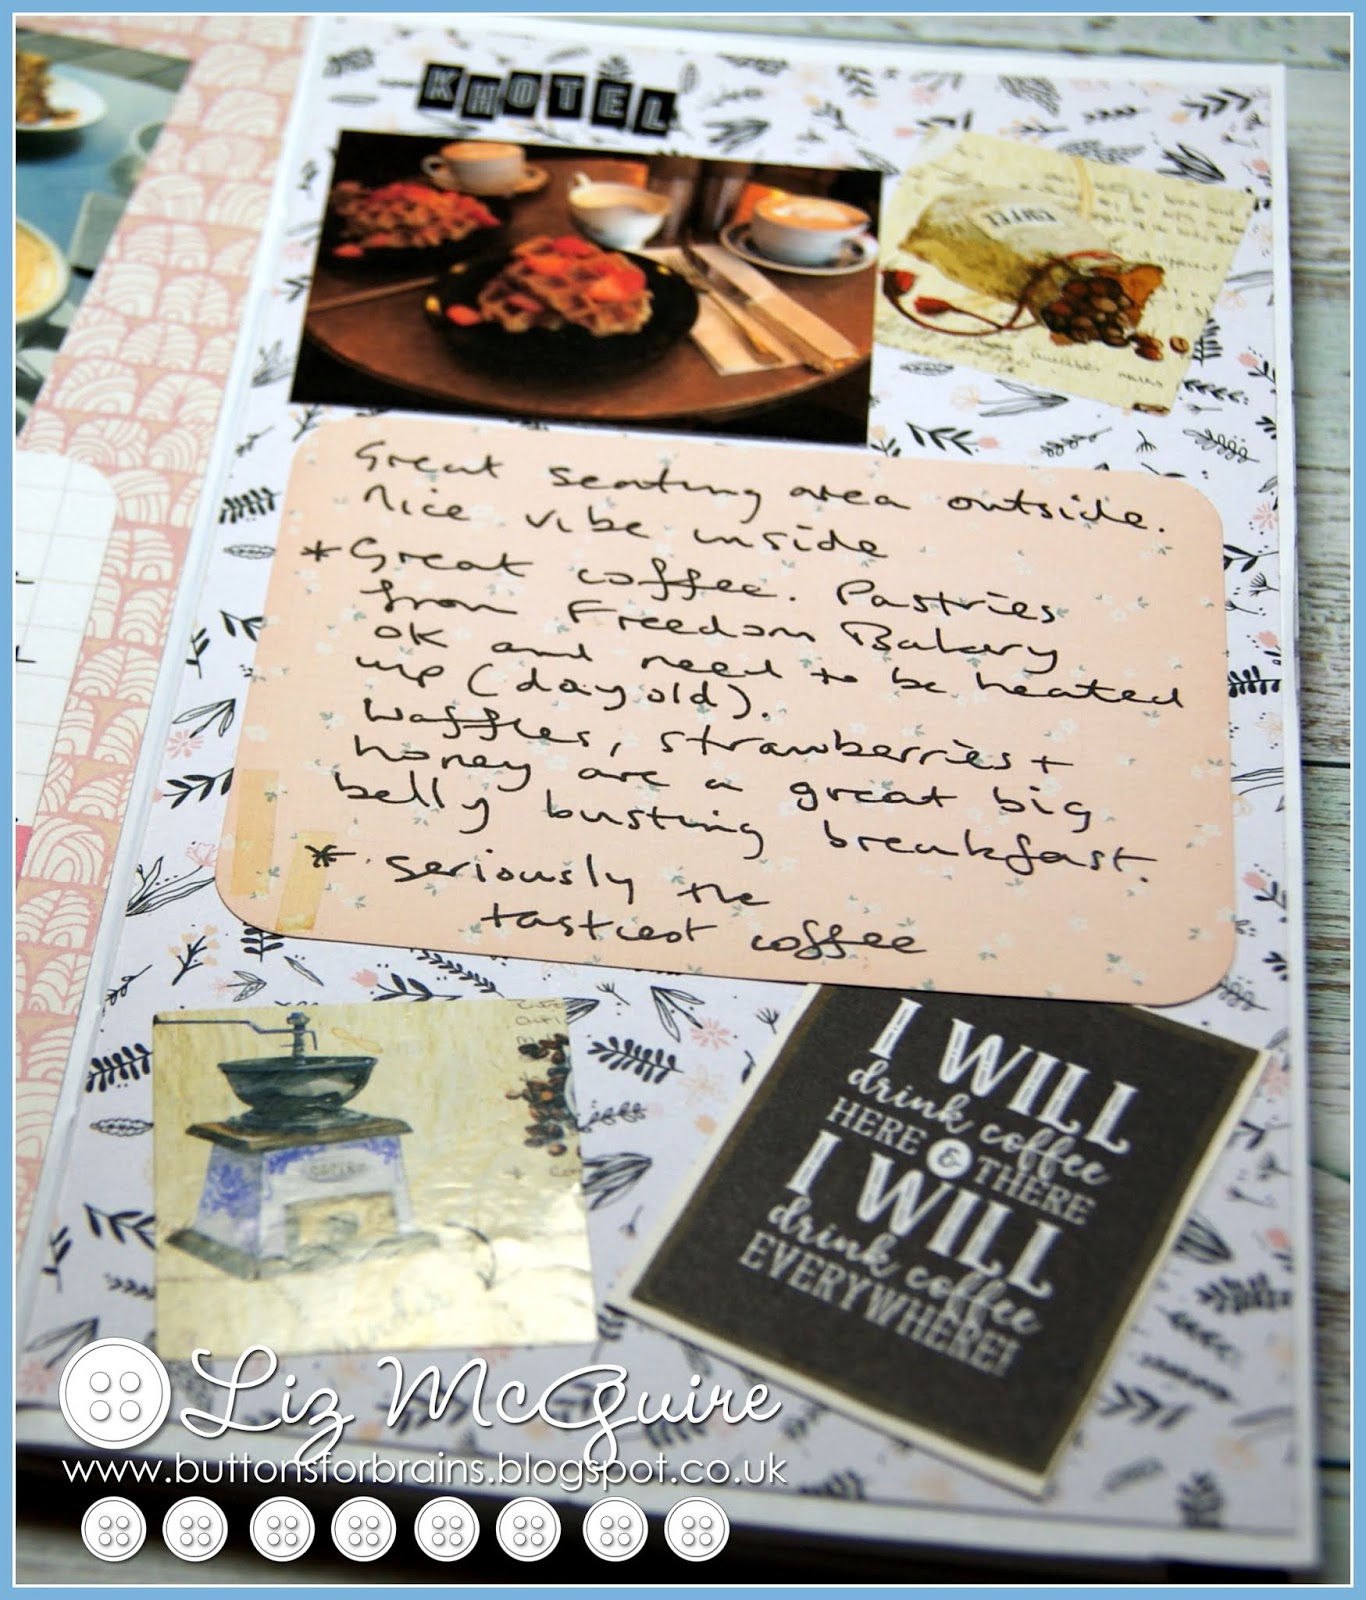 KHOTEL
Great seating area outside.
Nice vibe inside
*Great coffee. Pastries
from Freedom Bakery
OK and need to be heated
up (day old).
Waffles, strawberries +
honey are a great big
belly busting breakfast.
* seriously the
tastiest coffee
I WILL
drink coffee
HERE & THERE
I WILL
drink coffee
EVERYWHERE!
Liz McGuire
www.buttonsforbrains.blogspot.co.uk